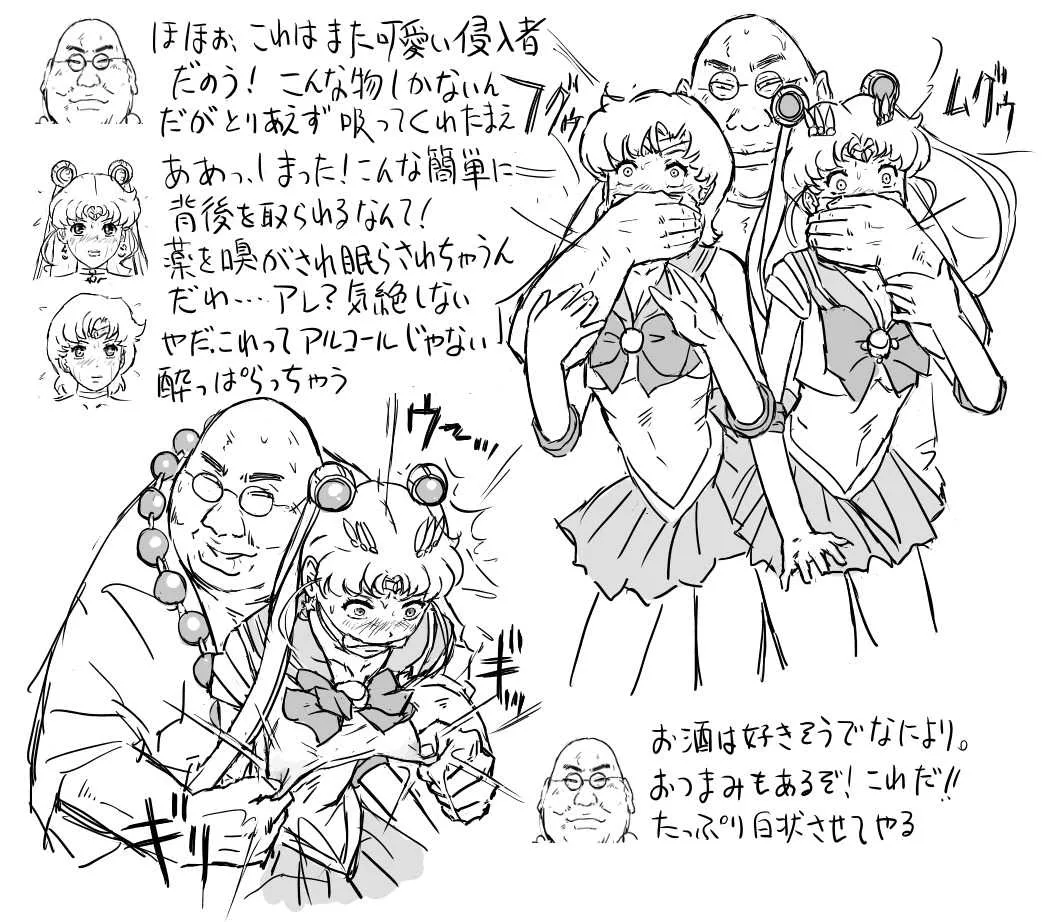 ほほぉ、これはまた可愛い侵入者
だのう！ こんな物しかないん
だがとりあえず吸ってくれたまえ
ああっ、しまった！こんな簡単に
背後を取られるなんて！
薬を嗅がされ眠らされちゃうん
だわ‥‥アレ？気絶しない
やだ、これってアルコールじゃない
酔っぱらっちゃう
ムグゥ
ウ〜…
ギギッ
ギギ
お酒は好きそうでなにより。
おつまみもあるぞ！これだ!!
たっぷり白状させてやる